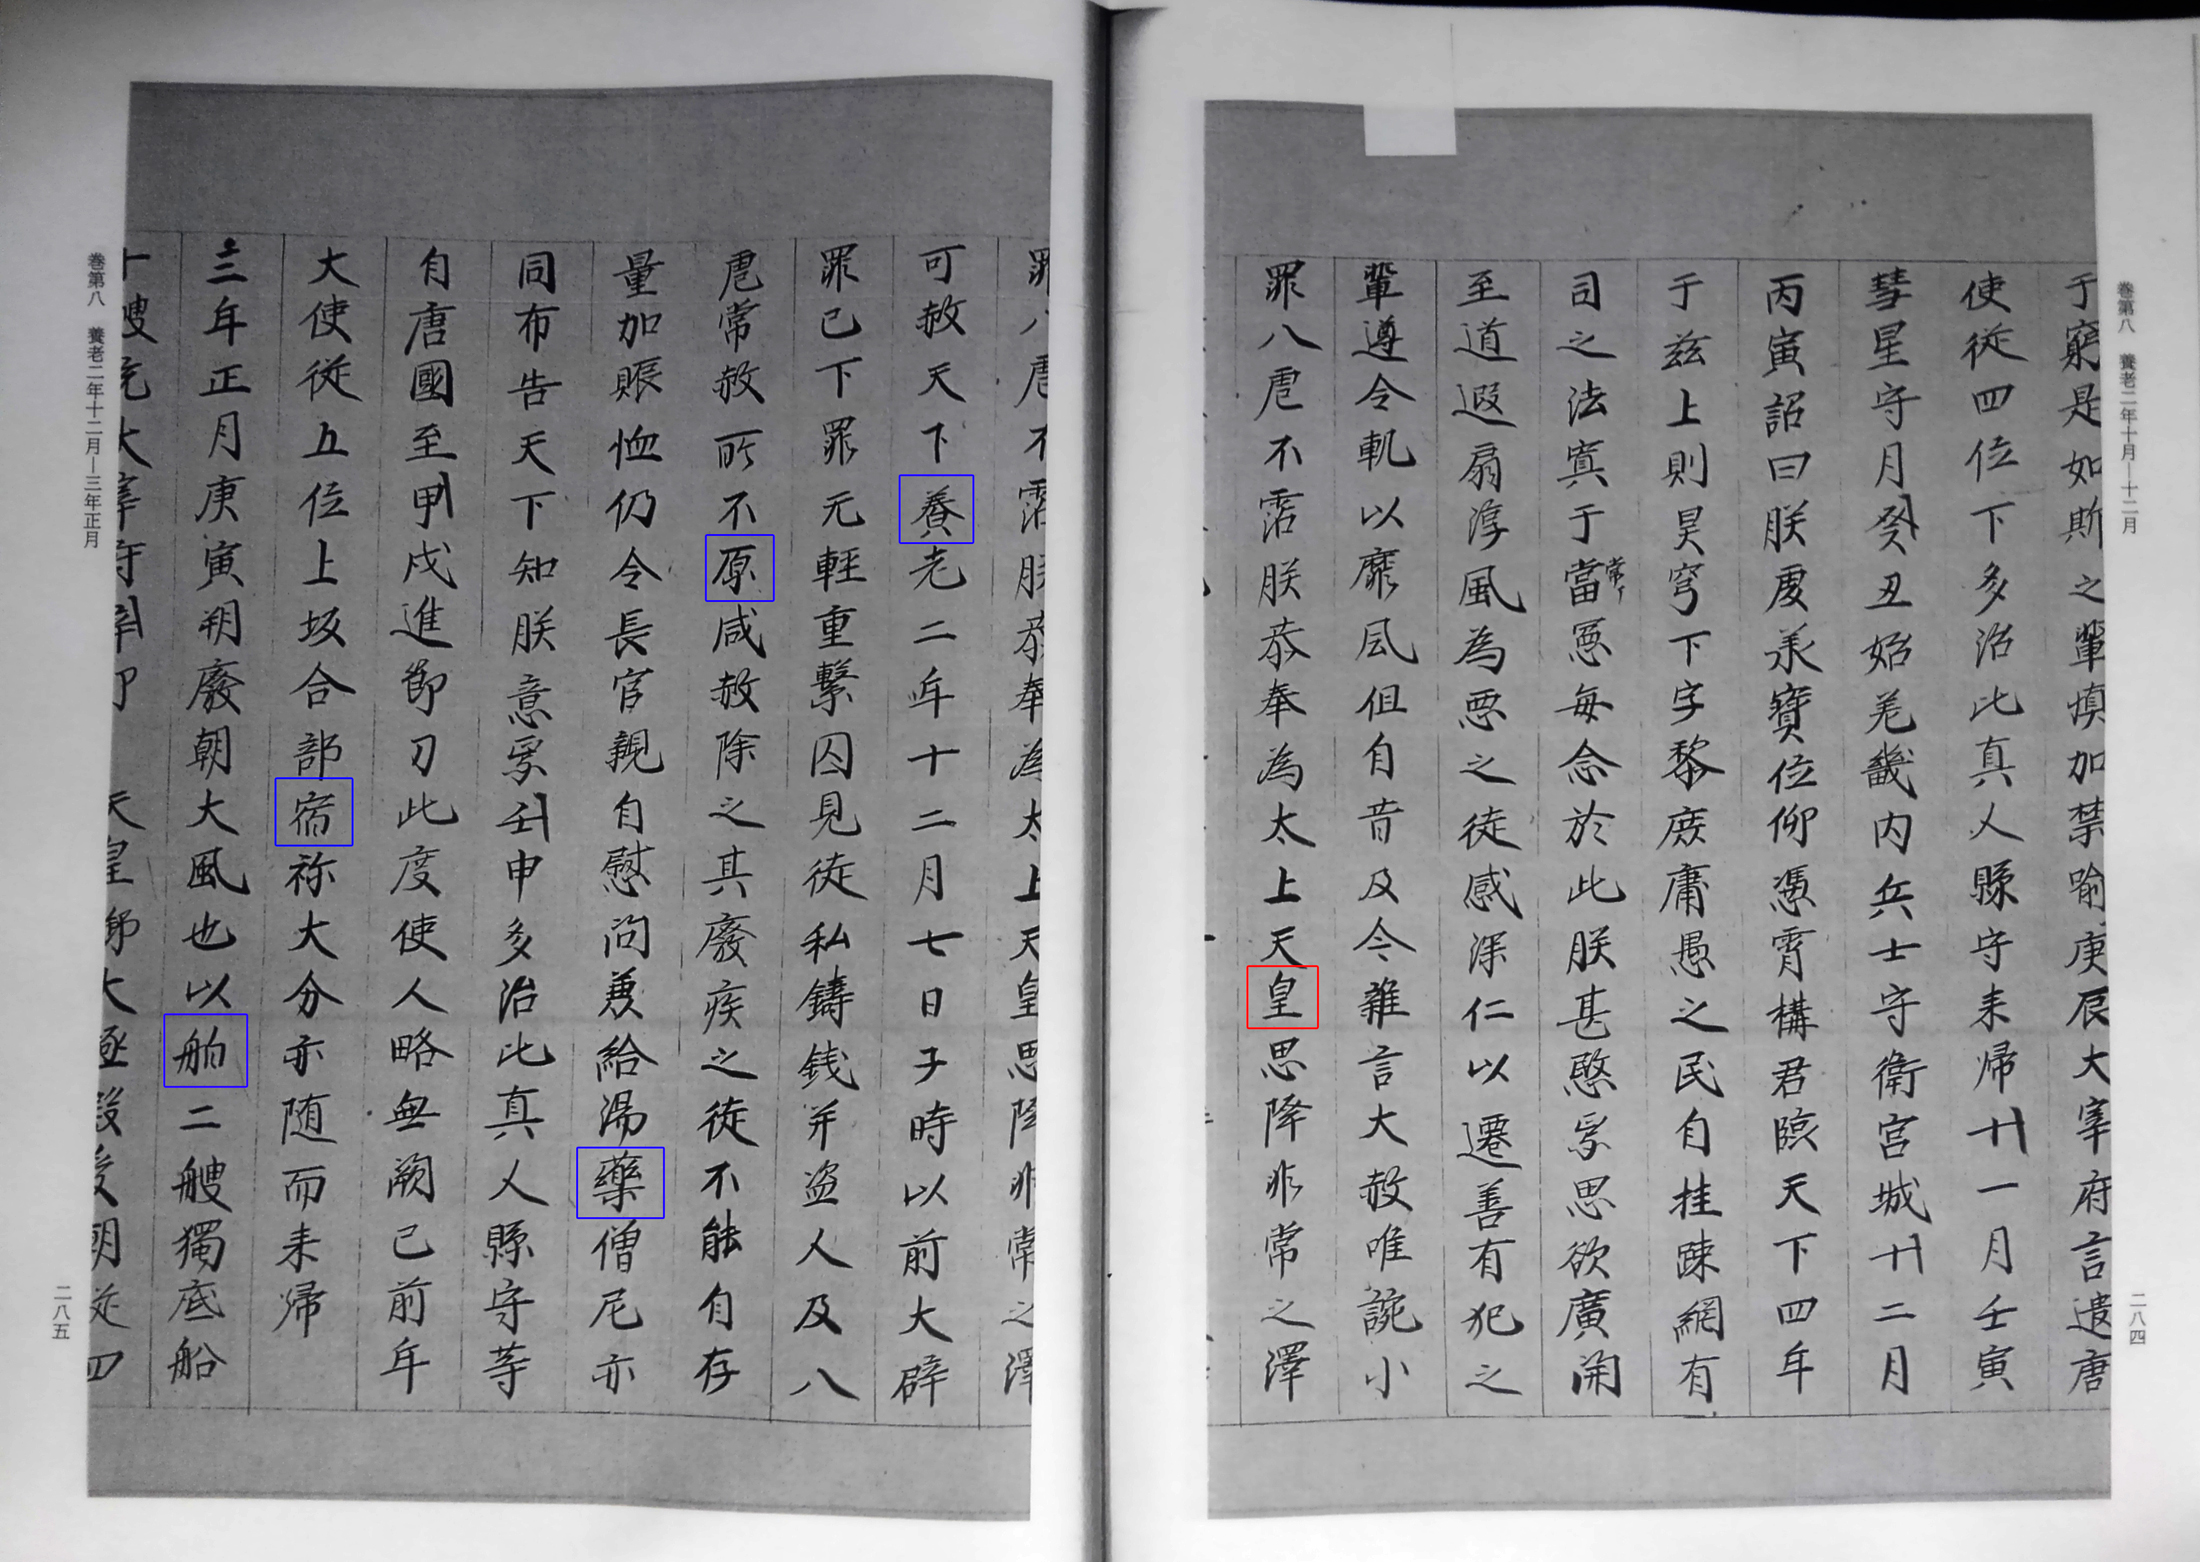 巻第八　養老二年十月―十二月
于窮是如斯之輩慎加禁喻庚辰大宰府言遣唐
使従四位下多治比真人縣守来帰十一月壬寅
彗星守月癸丑始差畿内兵士守衛宮城十二月
丙寅詔曰朕虔承寶位仰憑霄構君臨天下四年
于茲上則昊穹下字黎庶庸愚之民自挂踈網有
司之法寘于當憲每念於此朕甚愍焉思欲廣開
常
至道遐扇淳風為悪之徒感深仁以遷善有犯之
輩遵令軌以靡風但自昔及今雑言大赦唯該小
罪八虐不霑朕恭奉為太上天皇思降非常之澤
二八四
罪八虐不霑朕恭奉為太上天皇思降非常之澤
可赦天下養老二年十二月七日子時以前大辟
罪已下罪元輕重繋囚見徒私鑄銭并盗人及八
虐常赦所不原咸赦除之其廢疾之徒不能自存
量加賑恤仍令長官親自慰問兼給湯藥僧尼亦
同布告天下知朕意焉壬申多治比真人縣守等
自唐國至甲戌進節刀此度使人略無闕亡前年
大使従五位上坂合部宿祢大分亦随而来帰
三年正月庚寅朔廢朝大風也以舶二艘獨底船
十艘充大宰府辛卯　天皇御大極殿受朝従四
巻第八　養老二年十二月―三年正月
二八五